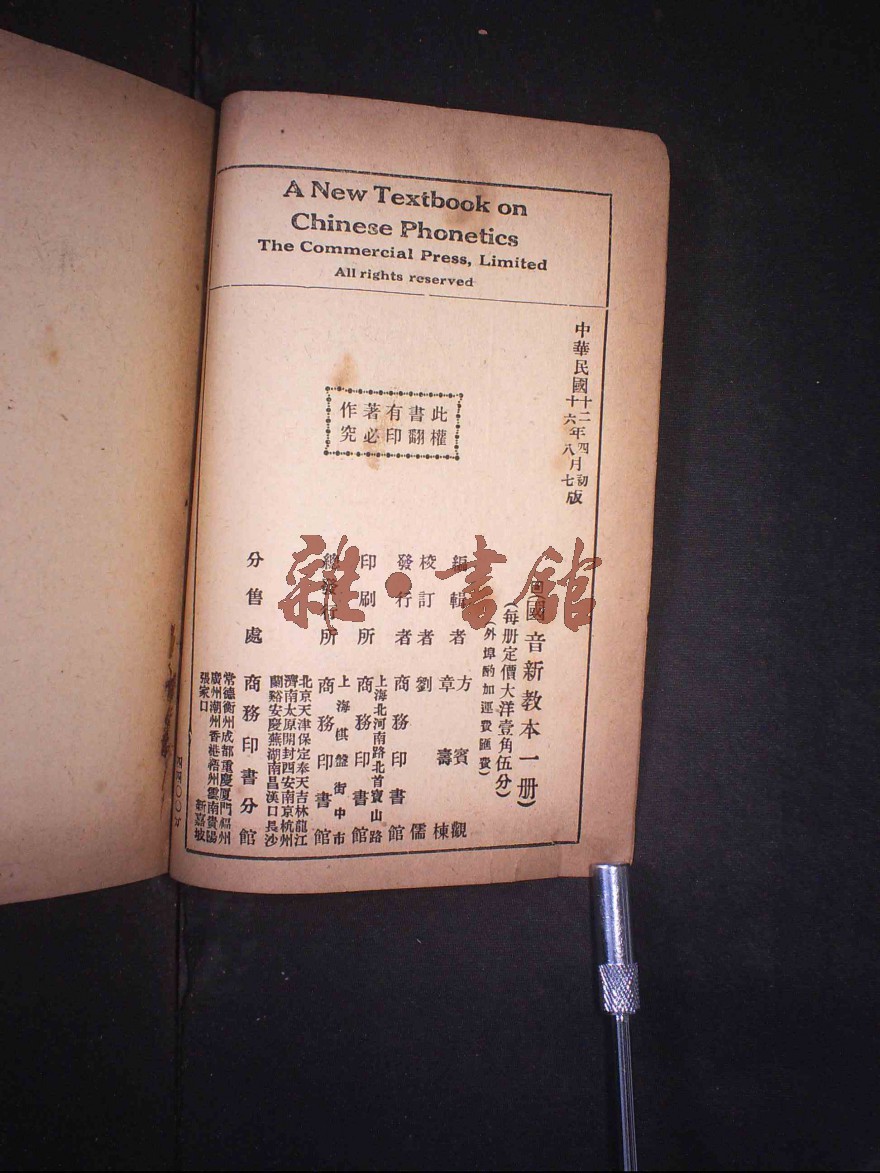 A New Textbook on
Chinese Phonetics
The Commercial Press, Limited
All rights reserved
中華民國十二年四月初版
十六年八月七版
此書有著作
權翻印必究
國音新教本一册
(每册定價大洋壹角伍分)
(外埠酌加運費匯費)
編輯者 方賓觀
章壽棟
校訂者 劉儒
發行者 商務印書館
上海北河南路北首寶山路
印刷所 商務印書館
上海棋盤街中市
總發行所 商務印書館
北京天津保定奉天吉林龍江
濟南太原開封西安南京杭州
蘭谿安慶蕪湖南昌漢口長沙
分售處 商務印書分館
常德衡州成都重慶厦門福州
廣州潮州香港梧州雲南貴陽
張家口 新嘉坡
雜·書館